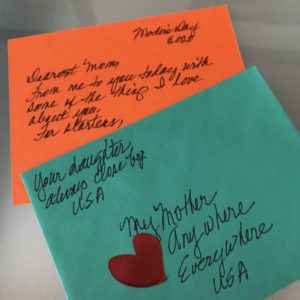 Mother's Day
2020
Dearest Mom
From me to you today with
some of the thing I love
about you.
For starters,
Your daughter,
always close by
USA
My Mother
Anywhere
Everywhere
USA